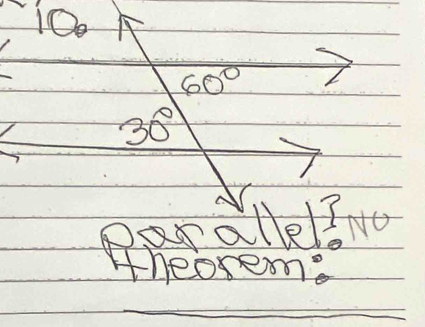 10.
60°
30°
parallel? NO
theorem: